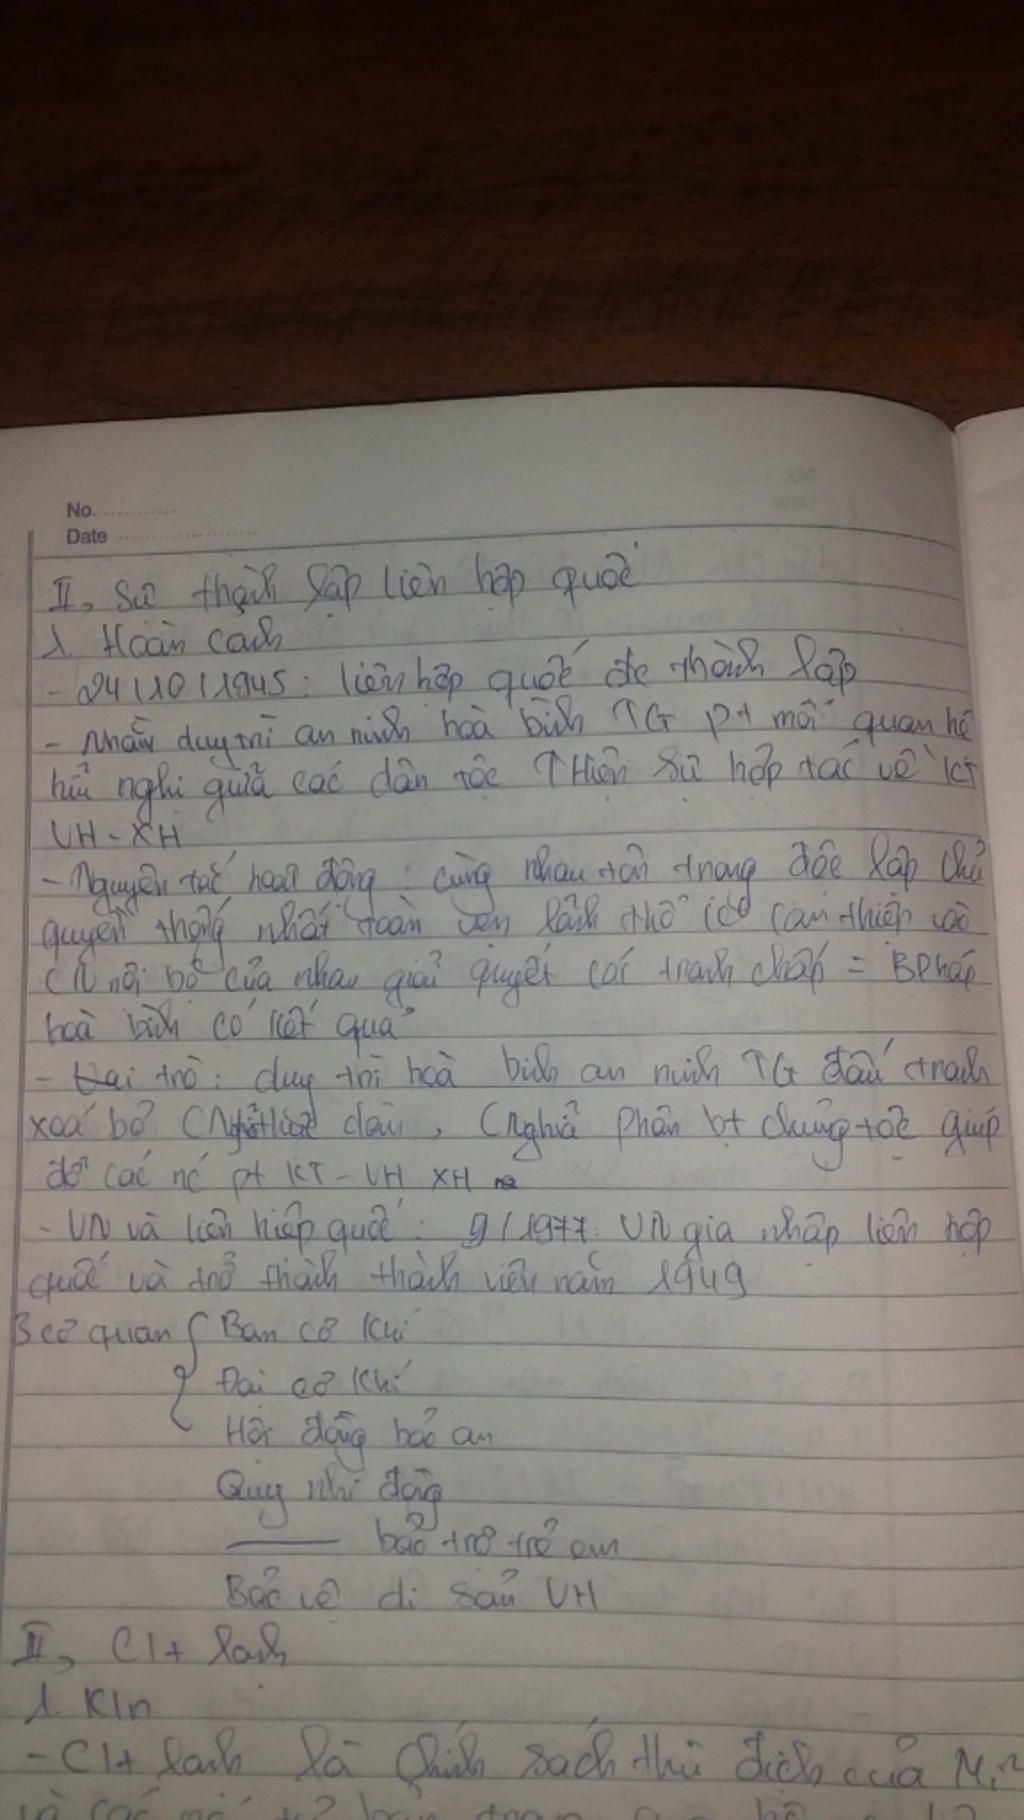 No.
Date
II, Sự thành lập liên hợp quốc
1. Hoàn cảnh
- 24/10/1945: liên hợp quốc đc thành lập
- Nhằm duy trì an ninh hoà bình TG pt mối quan hệ
hữu nghị giữa các dân tộc Thiện sự hợp tác về KT
VH - XH
- Nguyên tắc hoạt động: cùng nhau tôn trọng độc lập chủ
quyền thống nhất toàn vẹn lãnh thổ can thiệp vào
CV nội bộ của nhau giải quyết các tranh chấp = BPháp
hoà bình có kết quả
- Vai trò: duy trì hoà bình an ninh TG đấu tranh
xoá bỏ dân, CNghĩa phân bt chủng tộc giúp
đỡ các nc pt KT - VH XH
- VN và liên hiệp quốc: 9/1977: VN gia nhập liên hợp
quốc và trở thành thành viên năm 1949
3 cơ quan Ban cơ Khí
Đại cơ Khí
Hội đồng bảo an
Quỹ nhi đồng
bảo trợ trẻ em
Bảo vệ di sản VH
II, C/t lạnh
1. K/n
- C/t lạnh là chính sách thù địch của Mĩ
và các